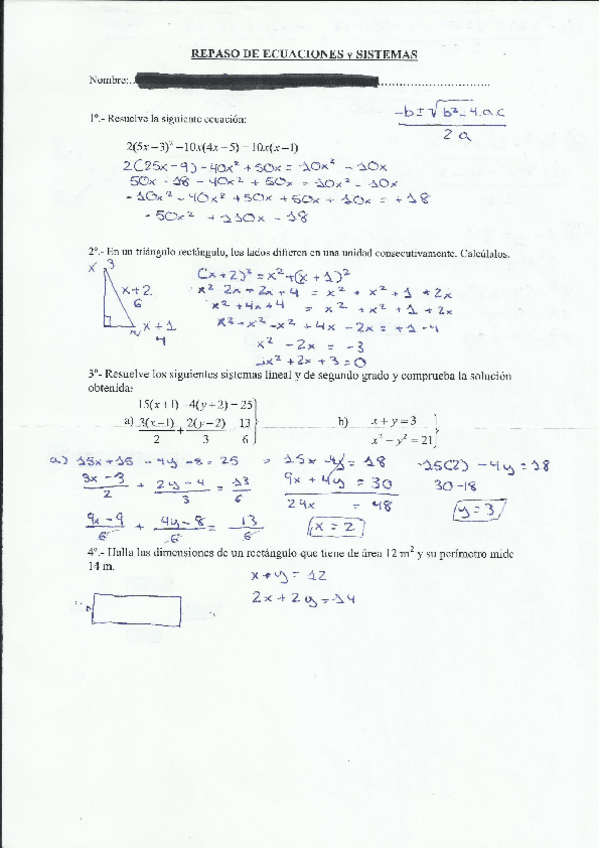 REPASO DE ECUACIONES y SISTEMAS
Nombre:
1º.- Resuelve la siguiente ecuación:
-b±√b²-4.a.c
2a
2(5x-3)² -10x(4x-5) = 10x(x-1)
2(25x-9)-40x²+50x=10x²-10x
50x-18-40x²+50x=10x²-10x
-10x²-40x²+50x+50x+10x=+18
-50x²+110x-18
2º.- En un triángulo rectángulo, los lados difieren en una unidad consecutivamente. Calcúlalos.
x 3
(x+2)²=x²+(x+1)²
x+2
6
x² 2x+2x+4 = x²+x²+1+2x
x²+4x+4 = x²+x²+1+2x
x+1
4
x²-x²-x²+4x-2x=+1-4
x²-2x=-3
x²+2x+3=0
3º.- Resuelve los siguientes sistemas lineal y de segundo grado y comprueba la solución
obtenida:
15(x+1)-4(y+2)=25
a) 3(x-1)/2 + 2(y-2)/3 = 13/6
b) x+y=3
x²-y²=21
a) 15x+15-4y-8=25
15x-4y=18
15(2)-4y=18
3x-3/2 + 2y-4/3 = 13/6
9x+4y=30
30-18
24x = 48
y=3
9x-9/6 + 4y-8/6 = 13/6
x=2
4º.- Halla las dimensiones de un rectángulo que tiene de área 12 m² y su perímetro mide
14 m.
x+y=12
2x+2y=14